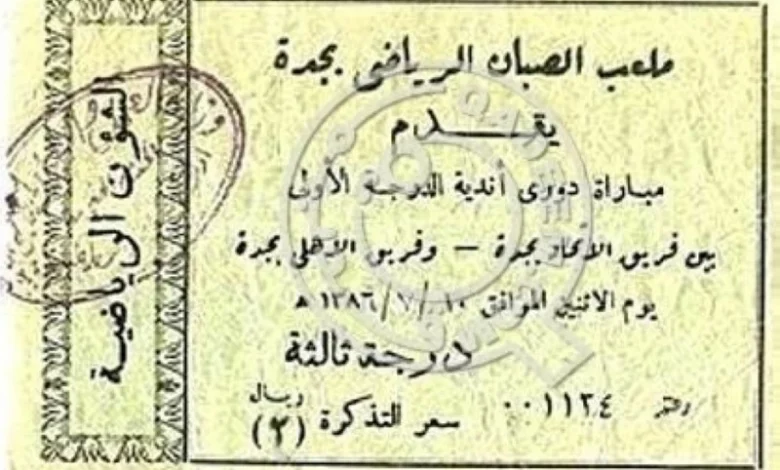 ملعب الصبان الرياضى بجدة
يقـــدم
مباراة دورى أندية الدرجة الأولى
بين فريق الاتحاد بجدة — وفريق الاهلى بجدة
يوم الاثنين الموافق ١٠/٧/١٣٨٦ ه
درجة ثالثة
رقم ٠٠١١٢٤
سعر التذكرة (٢) ريال
الشؤن الرياضية